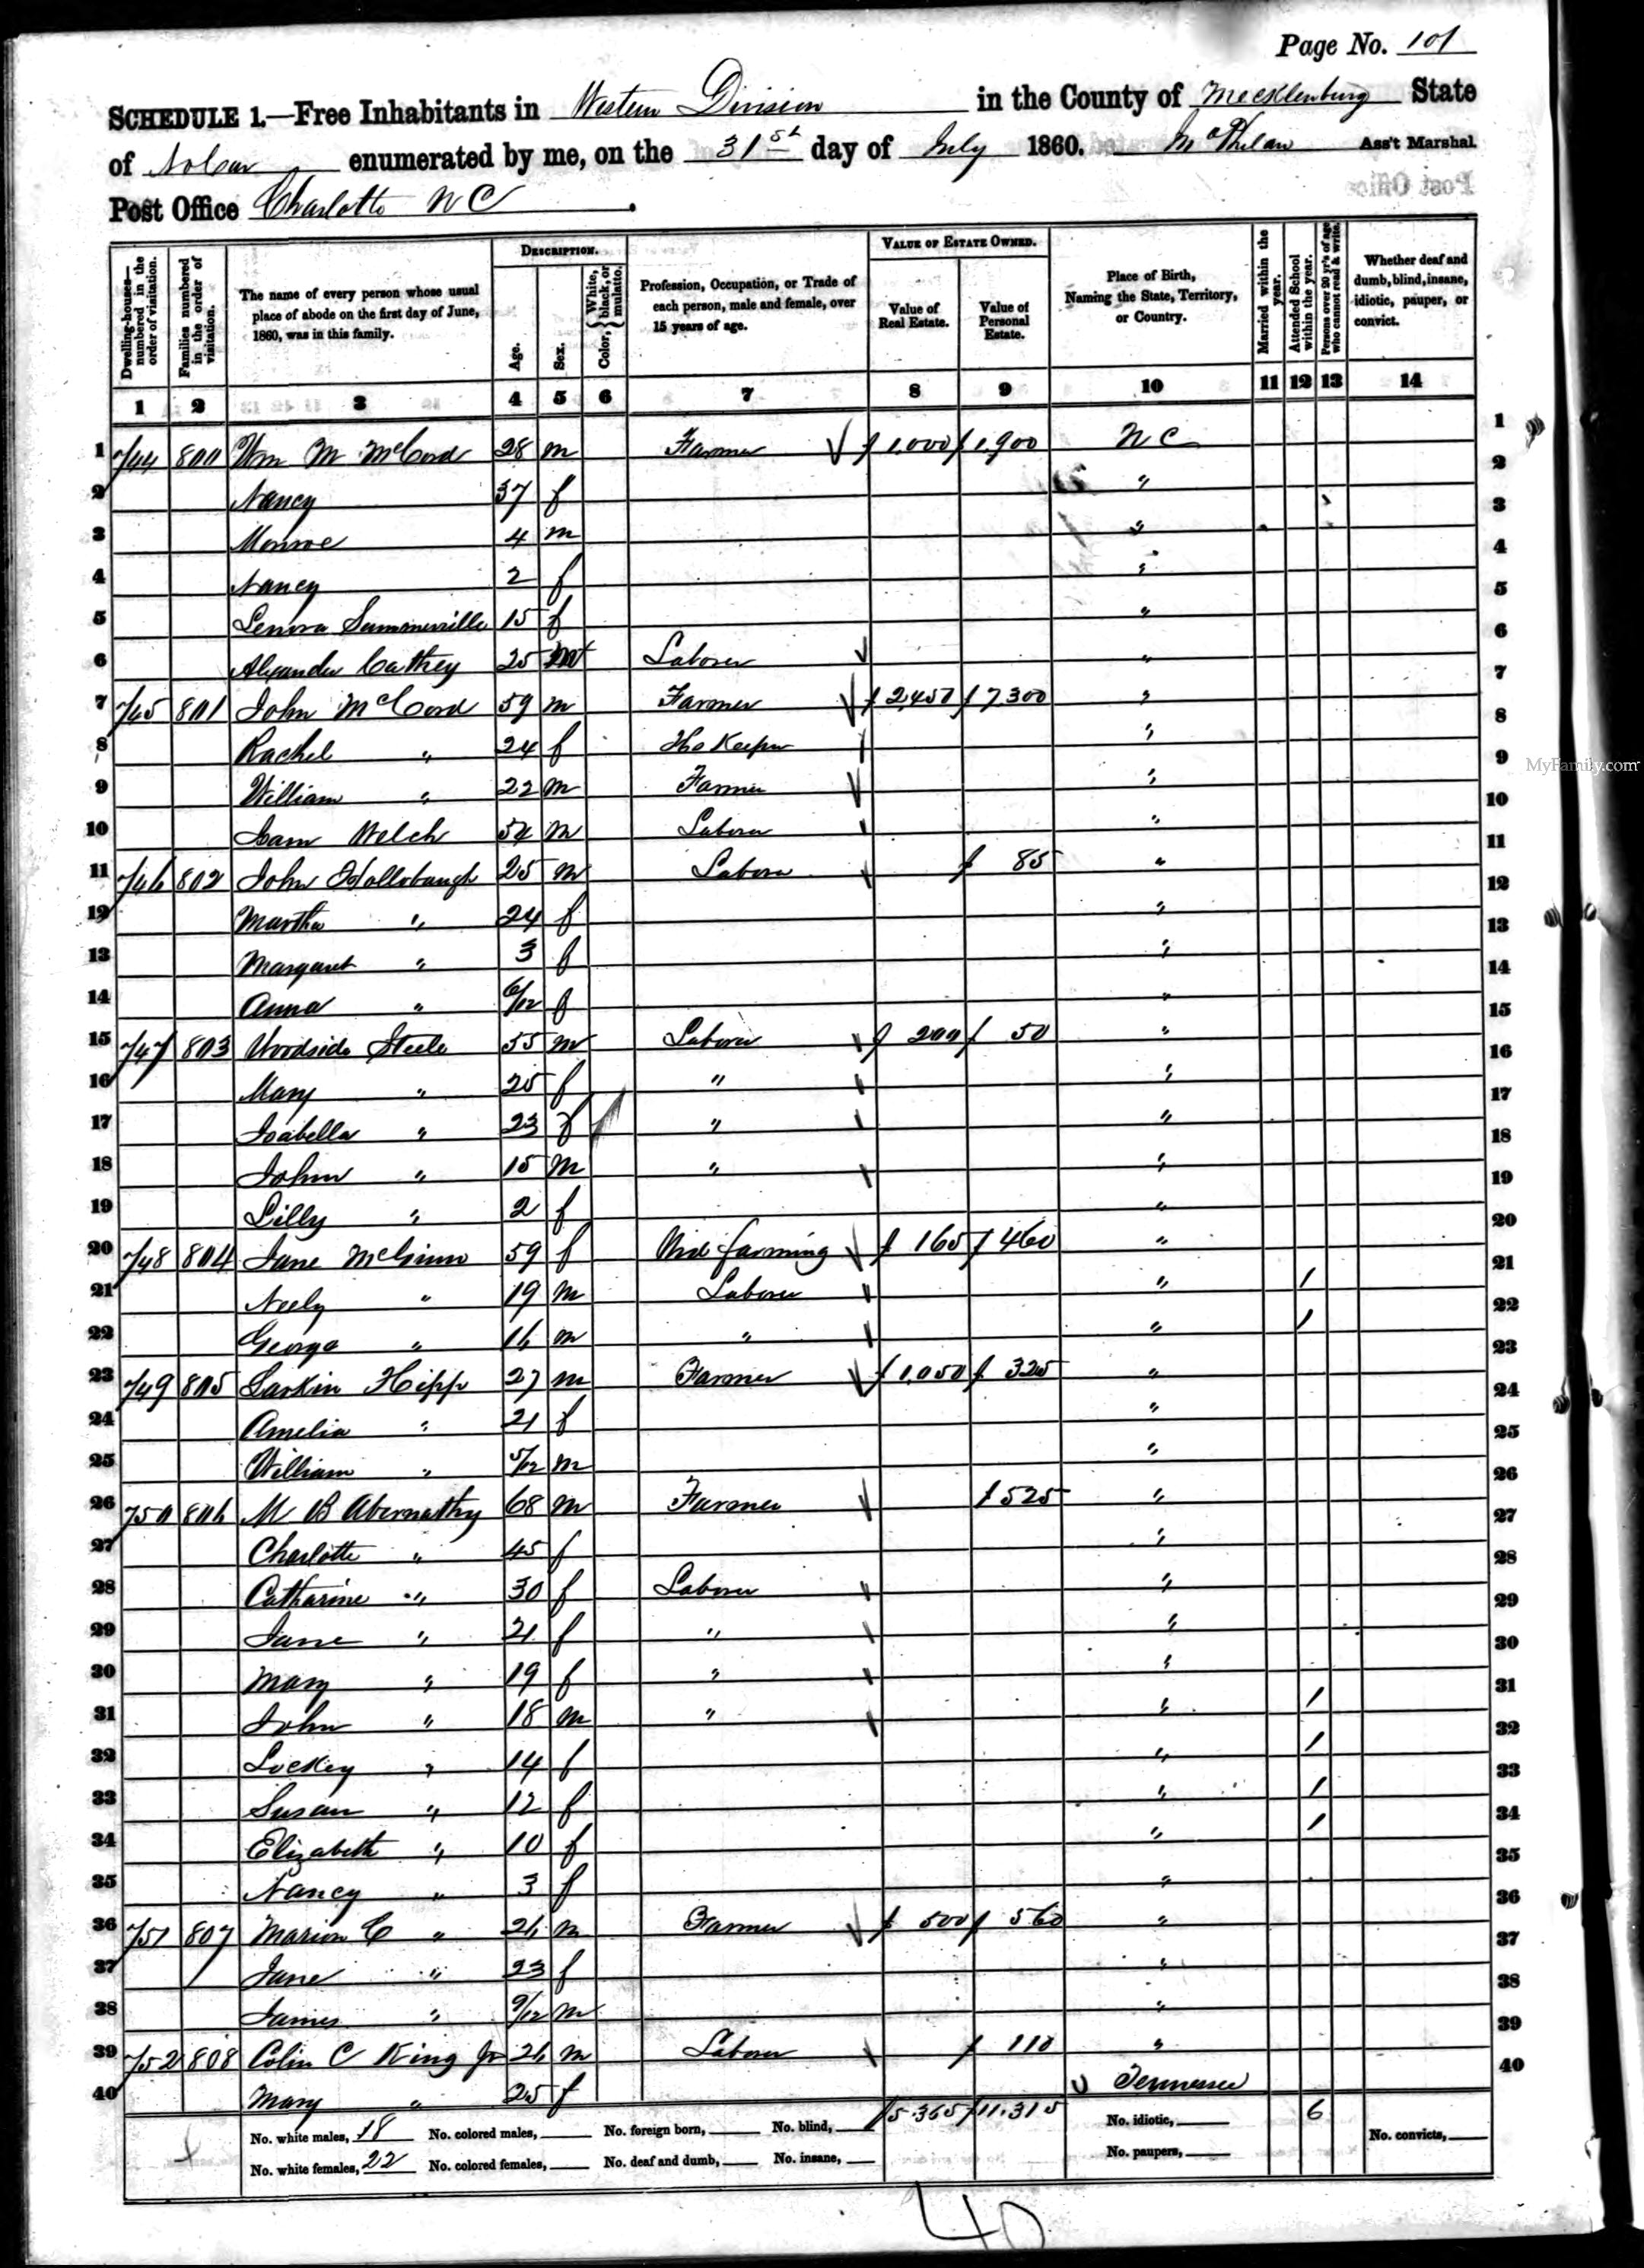 Page No. 101
SCHEDULE 1.—Free Inhabitants in Western Division in the County of Mecklenburg State
of No Car enumerated by me, on the 31st day of July 1860. Ass't Marshal.
Post Office Charlotte N C
DESCRIPTION. VALUE OF ESTATE OWNED.
Dwelling-houses—numbered in the order of visitation. Families numbered in the order of visitation. The name of every person whose usual place of abode on the first day of June, 1860, was in this family. Age. Sex. Color, {White, black, or mulatto. Profession, Occupation, or Trade of each person, male and female, over 15 years of age. Value of Real Estate. Value of Personal Estate. Place of Birth, Naming the State, Territory, or Country. Married within the year. Attended School within the year. Persons over 20 yr's of age who cannot read & write. Whether deaf and dumb, blind, insane, idiotic, pauper, or convict.
1 2 3 4 5 6 7 8 9 10 11 12 13 14
1 744 800 Wm M McCord 28 m Farmer $ 1,000 $ 1,900 N C 1
2 Nancy 37 f " 2
3 Monroe 4 m " 3
4 Nancy 2 f " 4
5 Lenora Summerville 15 f " 5
6 Alexander Cathey 25 m Laborer " 6
7 745 801 John McCord 59 m Farmer $ 2,450 $ 7,300 " 7
8 Rachel " 24 f Ho Keeper " 8
9 William " 22 m Farmer " 9
10 Sam Welch 54 m Laborer " 10
11 746 802 John Hollobaugh 25 m Laborer $ 85 " 11
12 Martha " 24 f " 12
13 Margaret " 3 f " 13
14 Anna " 6/12 f " 14
15 747 803 Woodside Steele 55 m Laborer $ 200 $ 50 " 15
16 Mary " 25 f " " 16
17 Isabella " 23 f " " 17
18 John " 15 m " " 18
19 Lilly " 2 f " 19
20 748 804 Jane McGinn 59 f Wid farming $ 165 $ 460 " 20
21 Neely " 19 m Laborer " / 21
22 George " 16 m " " / 22
23 749 805 Larkin Hipp 27 m Farmer $ 1,050 $ 325 " 23
24 Amelia " 21 f " 24
25 William " 5/12 m " 25
26 750 806 M B Abernathy 68 m Farmer $ 525 " 26
27 Charlotte " 45 f " 27
28 Catharine " 30 f Laborer " 28
29 Jane " 21 f " " 29
30 Mary " 19 f " " 30
31 John " 18 m " " / 31
32 Lockey " 14 f " / 32
33 Susan " 12 f " / 33
34 Elizabeth " 10 f " / 34
35 Nancy " 3 f " 35
36 751 807 Marion C " 26 m Farmer $ 500 $ 560 " 36
37 Jane " 23 f " 37
38 James " 9/12 m " 38
39 752 808 Colin C King Jr 26 m Laborer $ 110 " 39
40 Mary " 25 f Tennessee 40
No. white males, 18 No. colored males, No. foreign born, No. blind, 5.365 11.315 No. idiotic, 6 No. convicts,
No. white females, 22 No. colored females, No. deaf and dumb, No. insane, No. paupers,
40
MyFamily.com